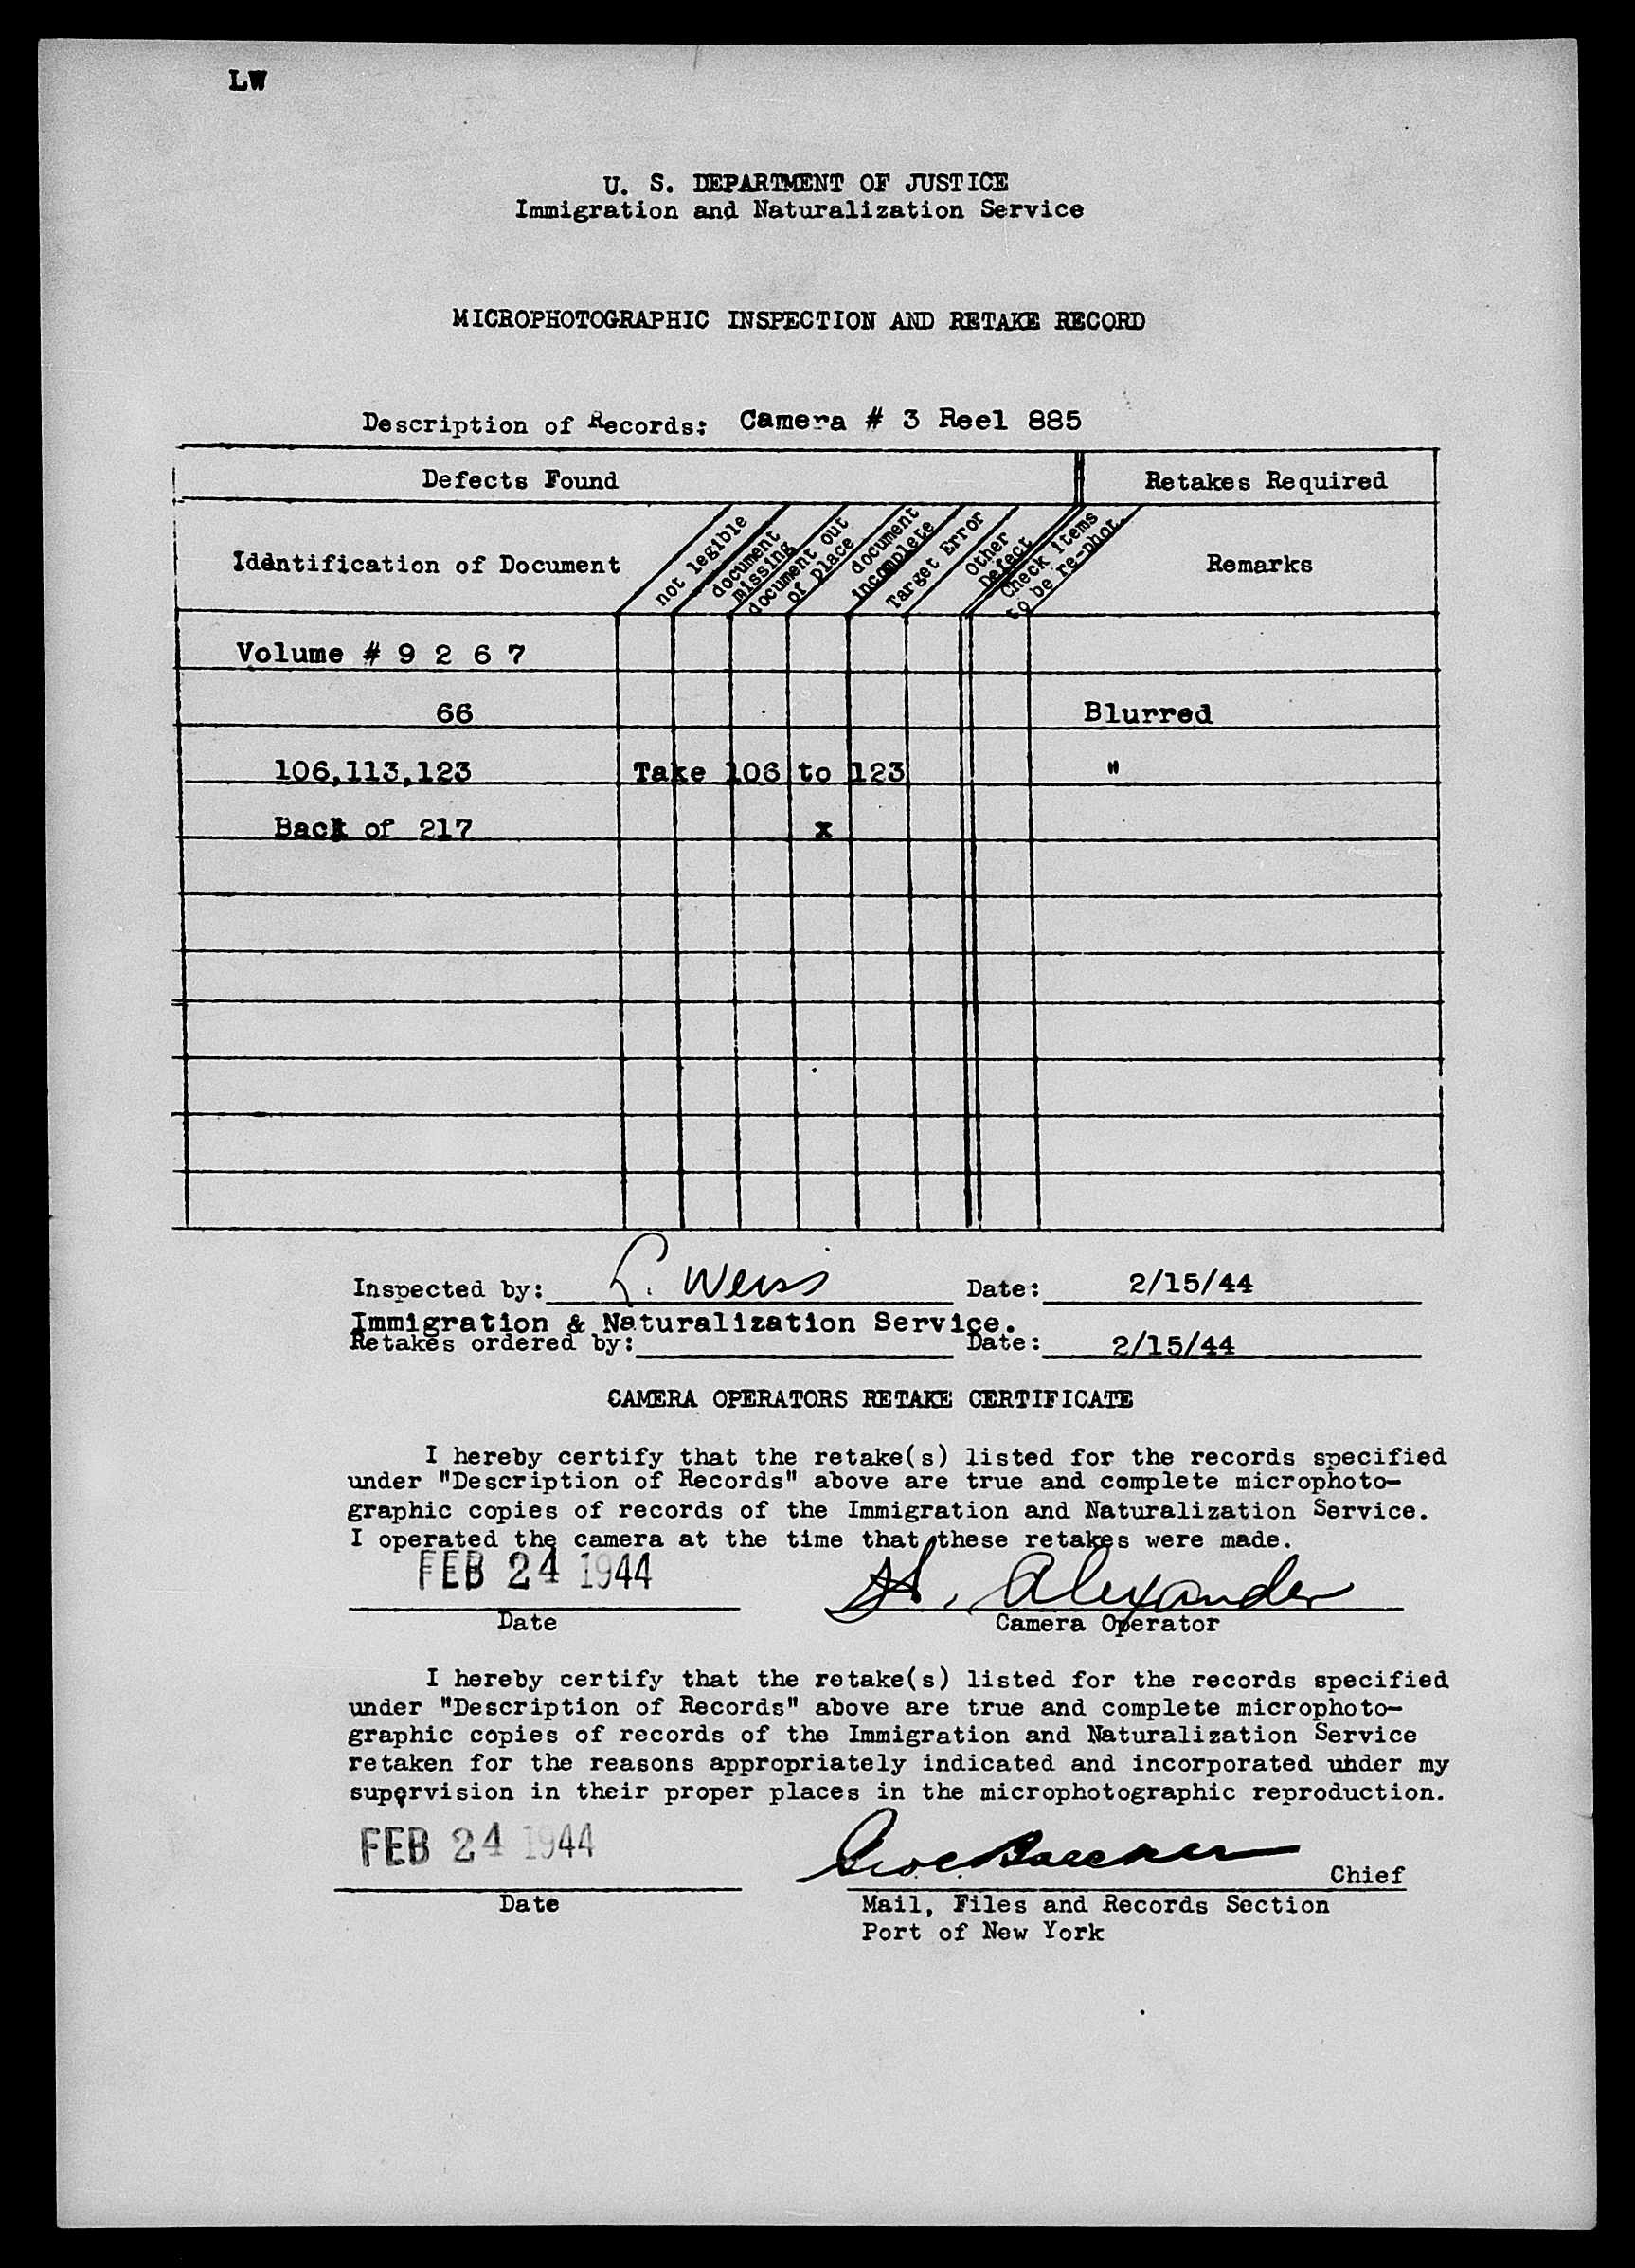 LW
U. S. DEPARTMENT OF JUSTICE
Immigration and Naturalization Service
MICROPHOTOGRAPHIC INSPECTION AND RETAKE RECORD
Description of Records: Camera # 3 Reel 885
Defects Found
Retakes Required
Identification of Document
not legible
document
missing
document out
of place
document
incomplete
Target Error
Other
Defect
Check items
to be re-phot.
Remarks
Volume # 9 2 6 7
66 Blurred
106,113,123 Take 106 to 123 "
Back of 217 x
Inspected by: L. Weiss Date: 2/15/44
Immigration & Naturalization Service.
Retakes ordered by: Date: 2/15/44
CAMERA OPERATORS RETAKE CERTIFICATE
I hereby certify that the retake(s) listed for the records specified
under "Description of Records" above are true and complete microphoto-
graphic copies of records of the Immigration and Naturalization Service.
I operated the camera at the time that these retakes were made.
FEB 24 1944 Alexander
Date Camera Operator
I hereby certify that the retake(s) listed for the records specified
under "Description of Records" above are true and complete microphoto-
graphic copies of records of the Immigration and Naturalization Service
retaken for the reasons appropriately indicated and incorporated uhder my
supervision in their proper places in the microphotographic reproduction.
FEB 24 1944 Chief
Date Mail, Files and Records Section
Port of New York